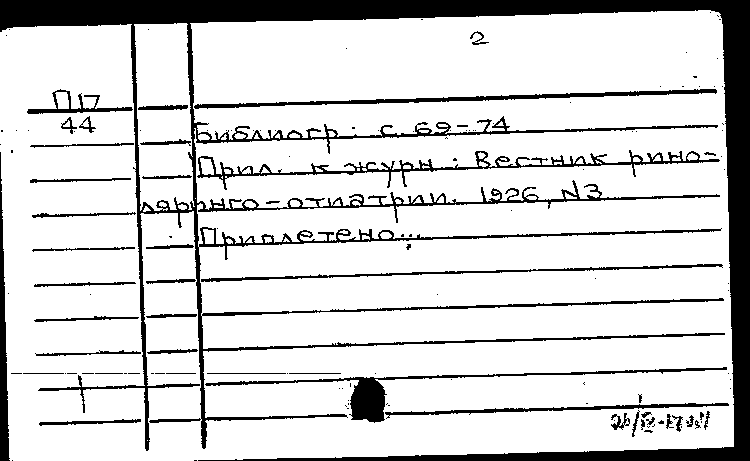 2
П17
44
Библиогр: с. 69-74
Прил. к журн: Вестник рино-
ляринго-отиатрии. 1926, N3
Приплетено...